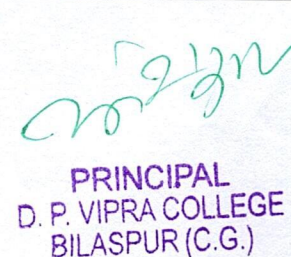 PRINCIPAL
D. P. VIPRA COLLEGE
BILASPUR (C.G.)